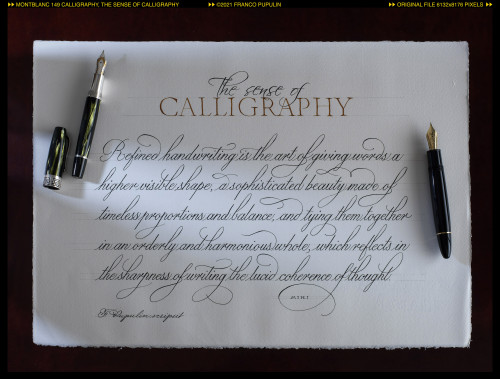 MONTBLANC 149 CALLIGRAPHY, THE SENSE OF CALLIGRAPHY
©2021 FRANCO PUPULIN
ORIGINAL FILE 6132x8176 PIXELS
The sense of
CALLIGRAPHY
Refined handwriting is the art of giving words a
higher visible shape, a sophisticated beauty made of
timeless proportions and balance, and tying them together
in an orderly and harmonious whole, which reflects in
the sharpness of writing the lucid coherence of thought
F Pupulin scripsit